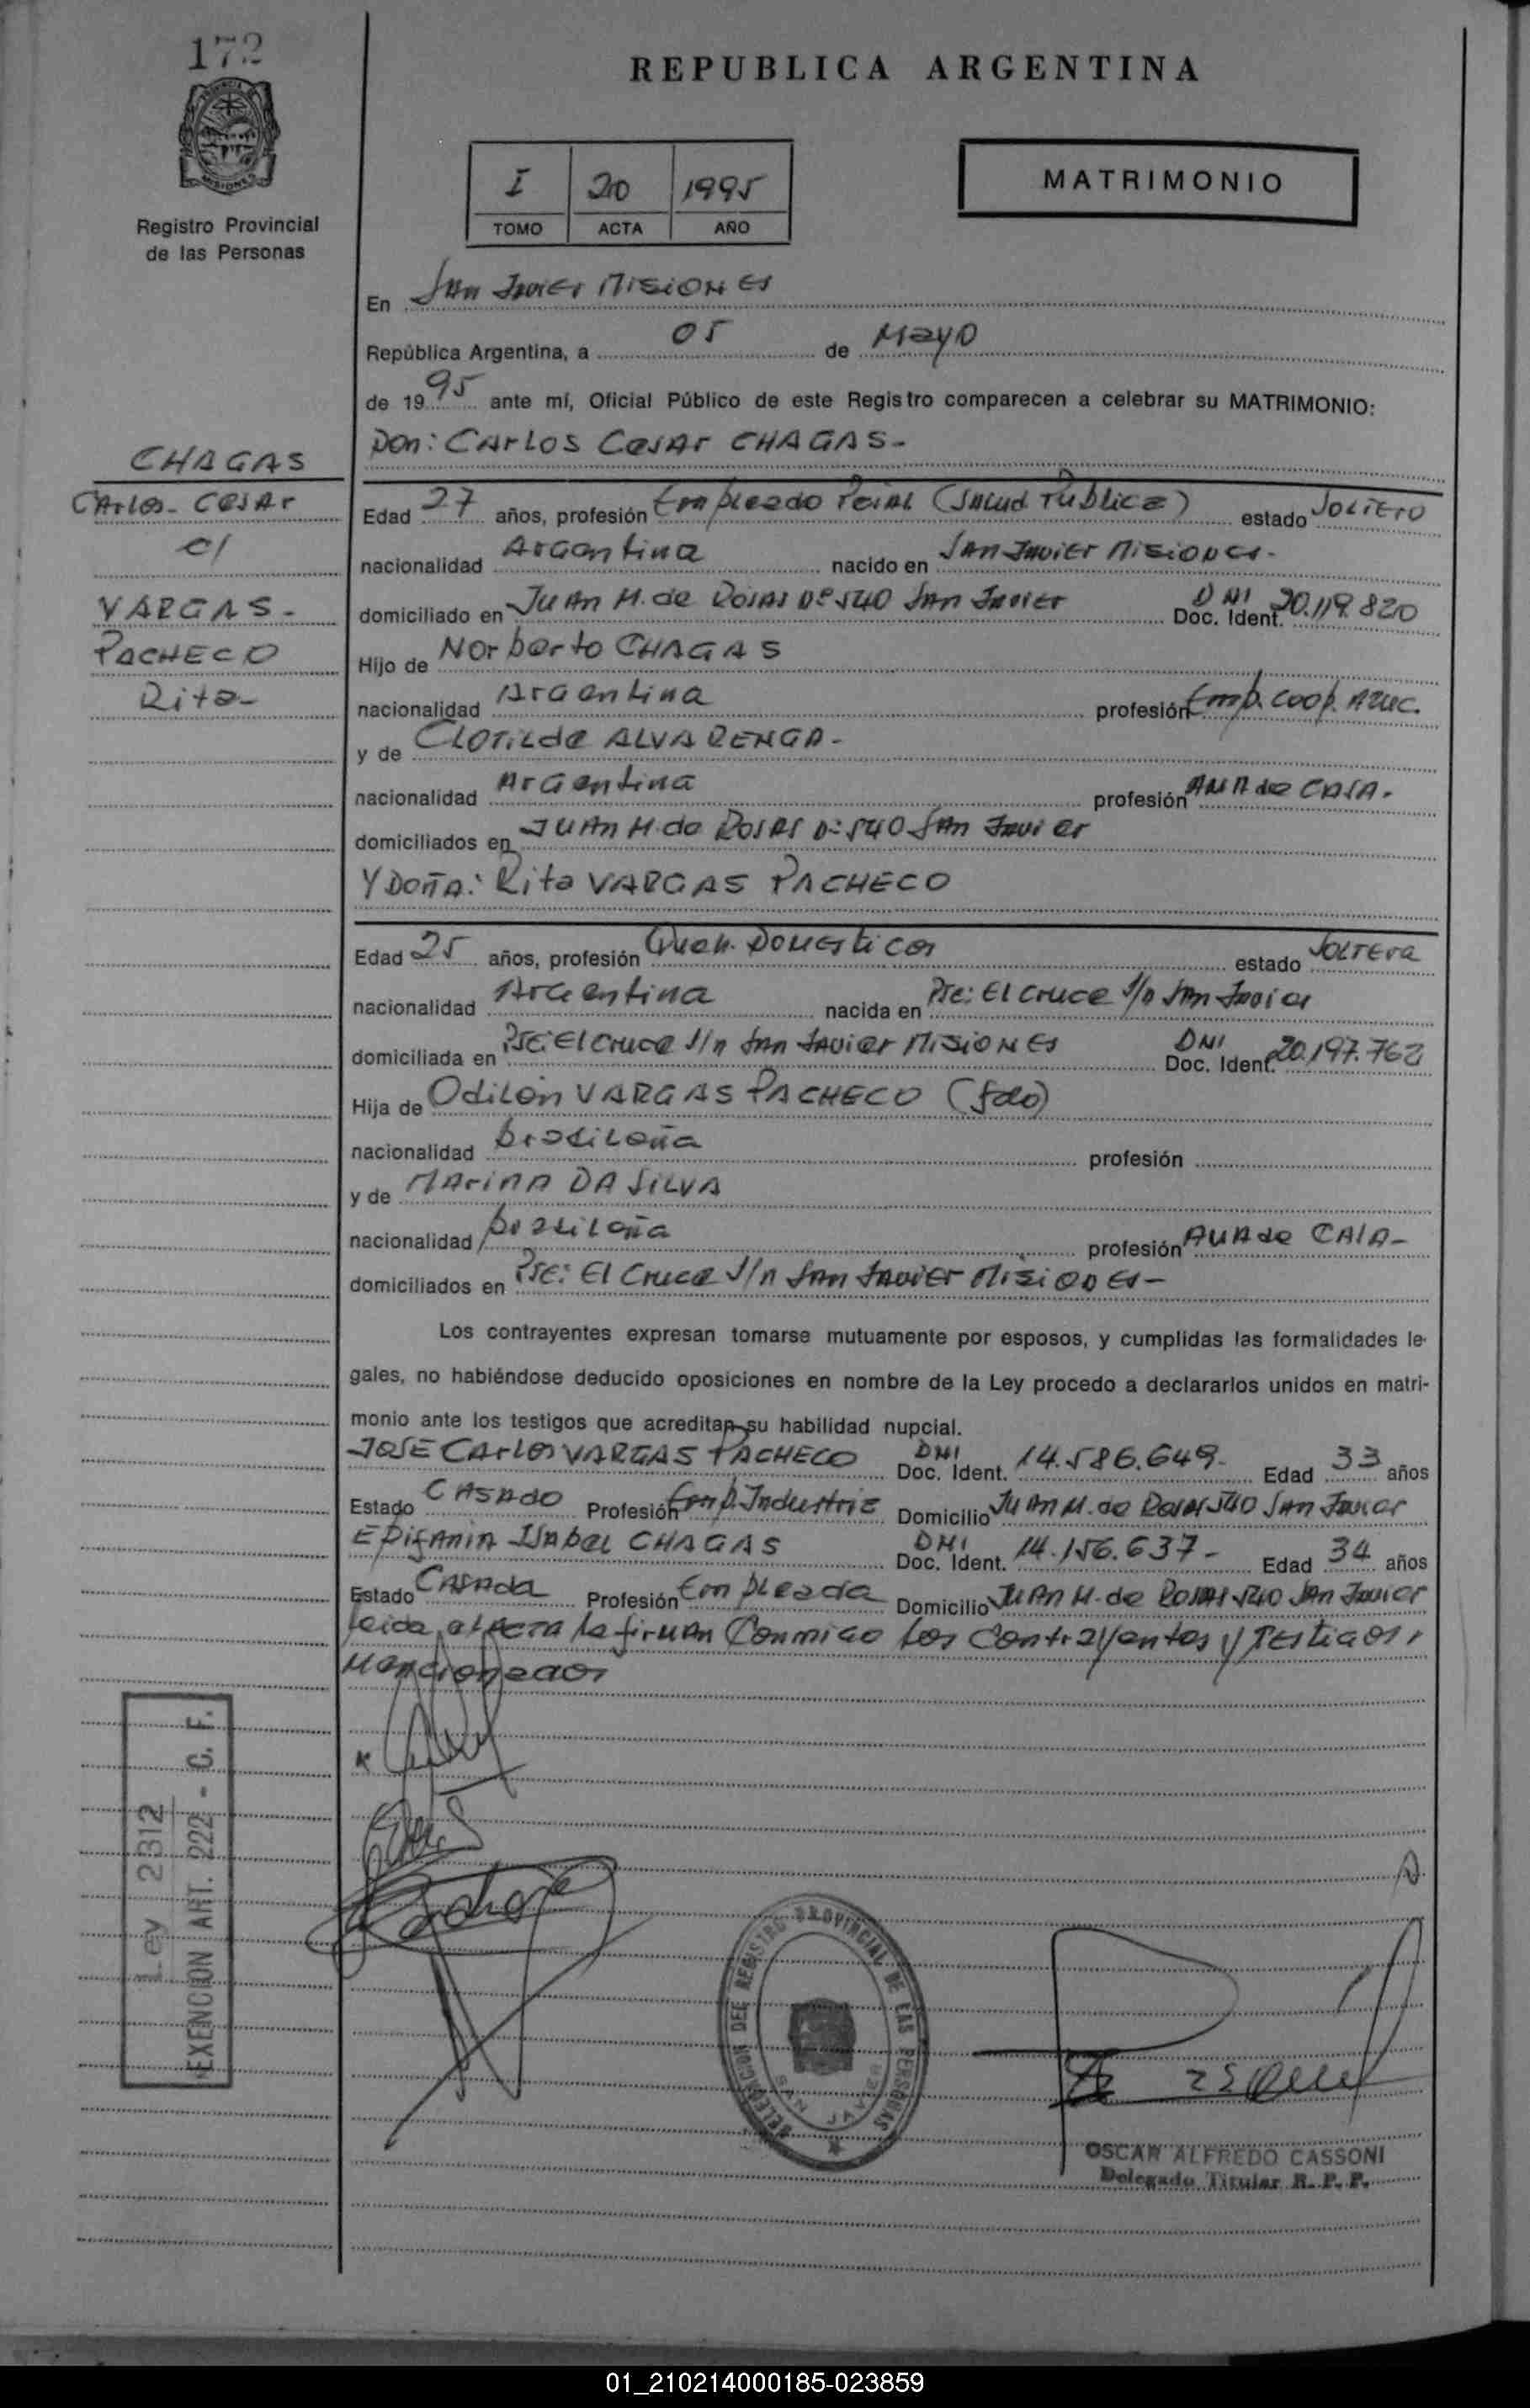 172
REPUBLICA ARGENTINA
MISIONES
Registro Provincial
de las Personas
I 20 1995
TOMO ACTA AÑO
MATRIMONIO
En San Javier Misiones
República Argentina, a 05 de Mayo
de 19 95 ante mí, Oficial Público de este Registro comparecen a celebrar su MATRIMONIO:
Don: Carlos Cesar CHAGAS-
CHAGAS
Carlos- Cesar
c/
VARGAS-
PACHECO
Rita-
Edad 27 años, profesión Empleado Pcial (Salud Publica) estado Soltero
nacionalidad Argentina nacido en San Javier Misiones-
domiciliado en Juan M. de Rosas Nº 540 San Javier DNI Doc. Ident. 20.119.820
Hijo de Norberto CHAGAS
nacionalidad Argentina profesión Emp. Coop. Azuc.
y de Clotilde ALVARENGA-
nacionalidad Argentina profesión Ama de Casa-
domiciliados en Juan M. de Rosas Nº 540 San Javier
Y DOÑA: Rita VARGAS PACHECO
Edad 25 años, profesión Queh. Domesticos estado Soltera
nacionalidad Argentina nacida en Pje: El Cruce S/n San Javier
domiciliada en Pje: El Cruce S/n San Javier Misiones DNI Doc. Ident. 20.197.762
Hija de Odilon VARGAS PACHECO (fdo)
nacionalidad brasileña profesión
y de Marina DA SILVA
nacionalidad brasileña profesión Ama de Casa-
domiciliados en Pje: El Cruce S/n San Javier Misiones-
Los contrayentes expresan tomarse mutuamente por esposos, y cumplidas las formalidades le-
gales, no habiéndose deducido oposiciones en nombre de la Ley procedo a declararlos unidos en matri-
monio ante los testigos que acreditan su habilidad nupcial.
JOSE Carlos VARGAS PACHECO DNI Doc. Ident. 14.586.649- Edad 33 años
Estado Casado Profesión Emp. Industria Domicilio Juan M. de Rosas 540 San Javier
Epifania Isabel CHAGAS DNI Doc. Ident. 14.156.637- Edad 34 años
Estado Casada Profesión Empleada Domicilio Juan M. de Rosas 540 San Javier
leida el Acta la firman Conmigo los Contrayentes y Testigos,
Mencionados
Ley 2312
EXENCION ART. 222 - C. F.
DELEGACION DEL REGISTRO PROVINCIAL DE LAS PERSONAS
SAN JAVIER
OSCAR ALFREDO CASSONI
Delegado Titular R. P. P.
01_210214000185-023859